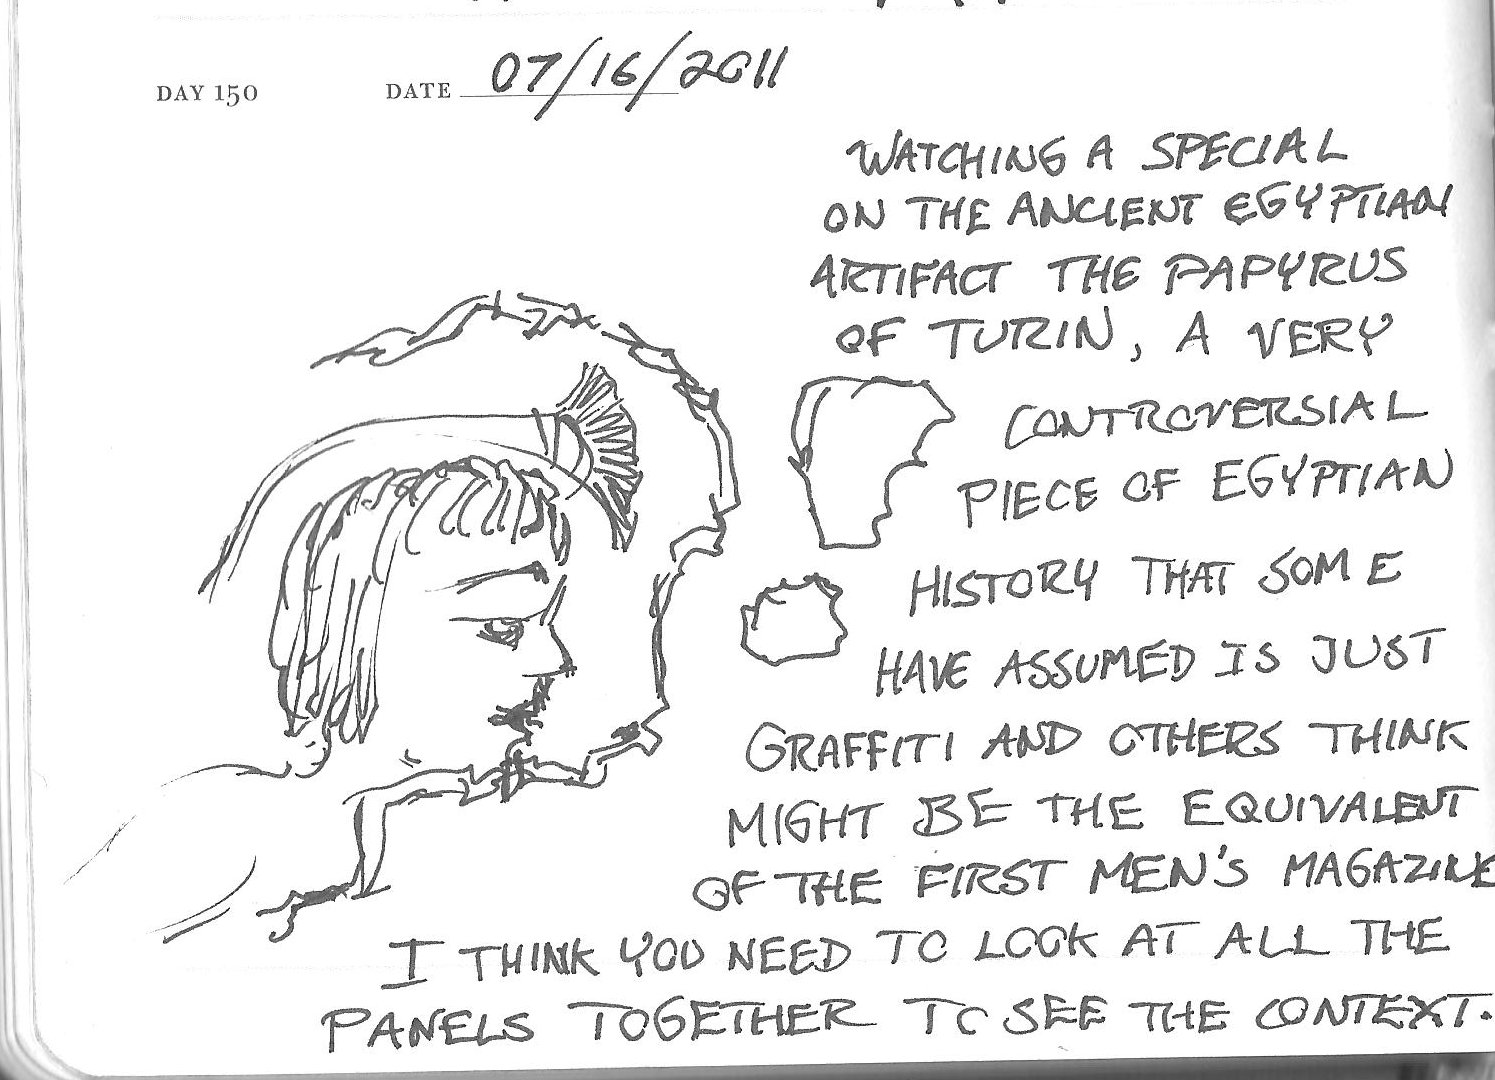 DAY 150 DATE 07/16/2011
WATCHING A SPECIAL
ON THE ANCIENT EGYPTIAN
ARTIFACT THE PAPYRUS
OF TURIN, A VERY
CONTROVERSIAL
PIECE OF EGYPTIAN
HISTORY THAT SOME
HAVE ASSUMED IS JUST
GRAFFITI AND OTHERS THINK
MIGHT BE THE EQUIVALENT
OF THE FIRST MEN'S MAGAZINE
I THINK YOU NEED TO LOOK AT ALL THE
PANELS TOGETHER TO SEE THE CONTEXT.